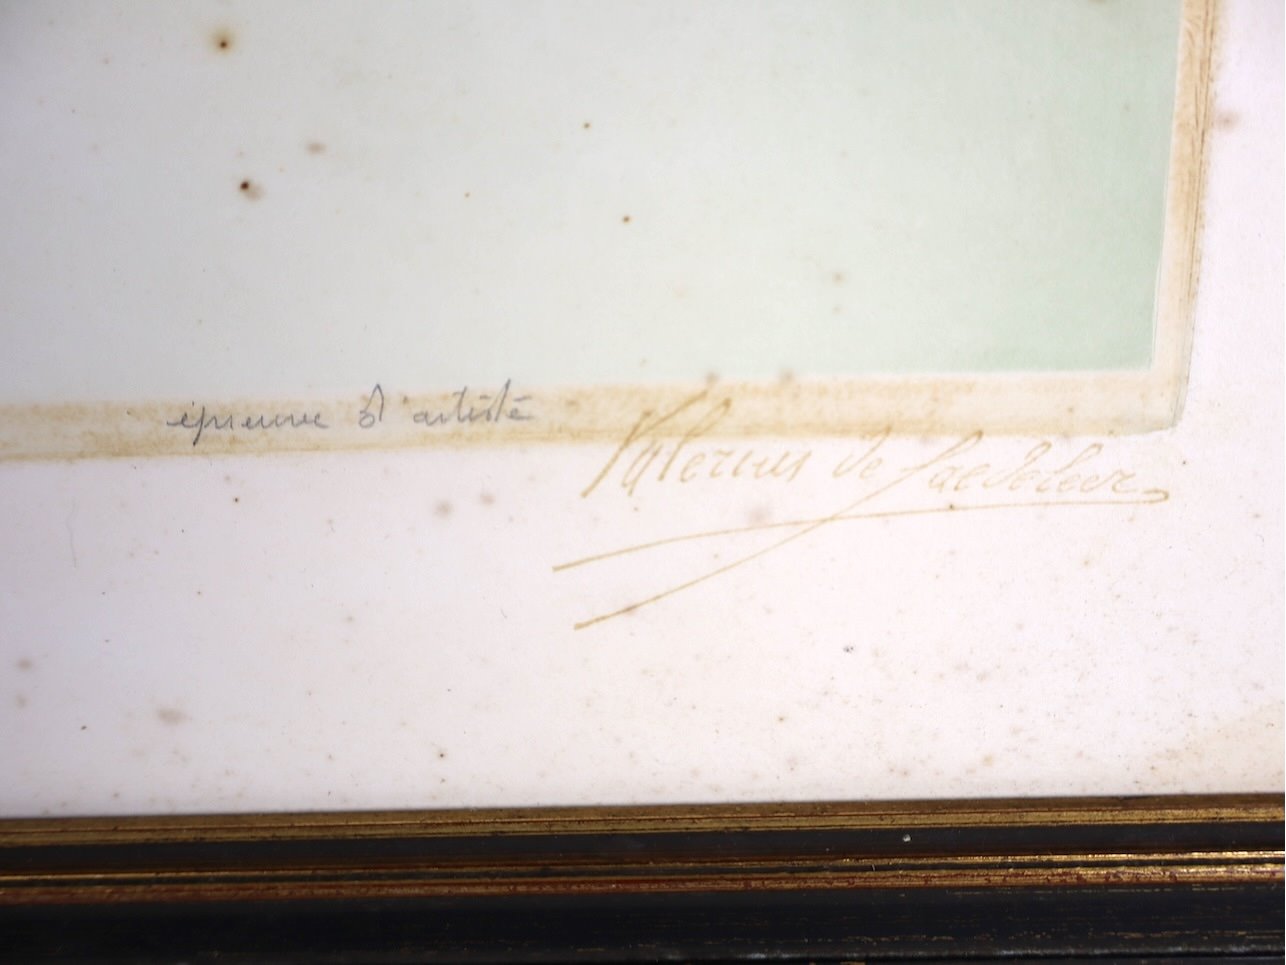 épreuve d'artiste
Valerius de Saedeleer